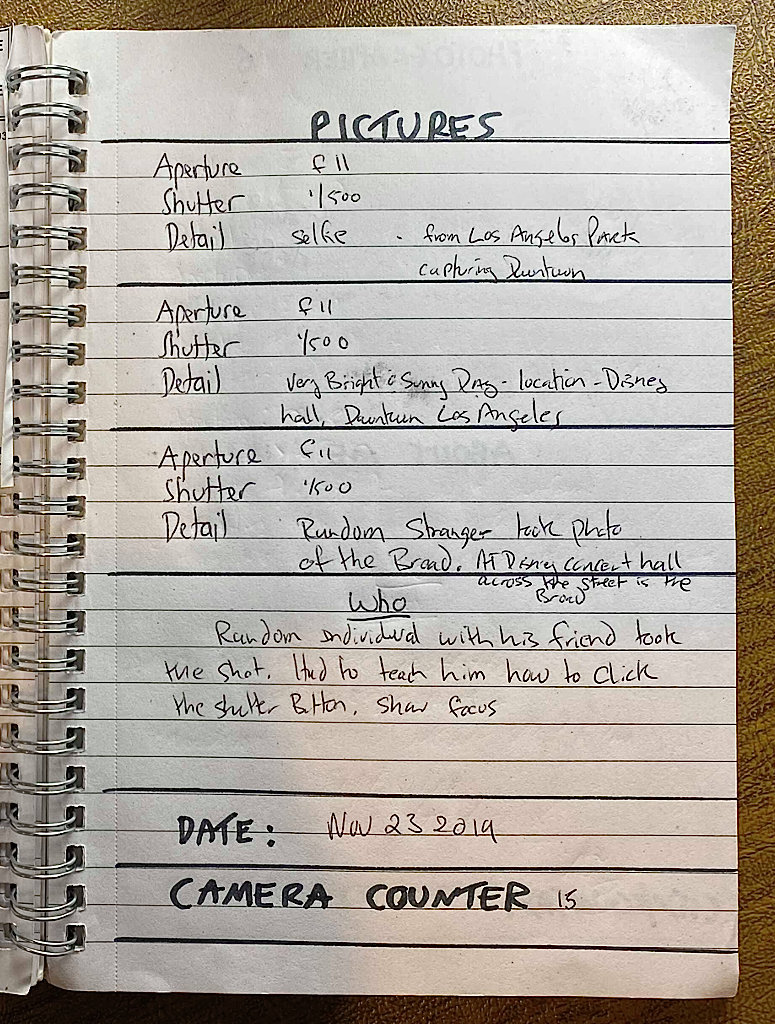 PICTURES
Aperture f 11
Shutter 1/500
Detail selfie - from Los Angeles Park
capturing Downtown
Aperture f 11
Shutter 1/500
Detail Very Bright & Sunny Day - location - Disney
hall, Downtown Los Angeles
Aperture f 11
Shutter 1/500
Detail Random Stranger took photo
of the Broad. At Disney concert hall
across the street is the
Broad
Who
Random individual with his friend took
the shot. Had to teach him how to click
the shutter Button, show focus
DATE: Nov 23 2019
CAMERA COUNTER 15